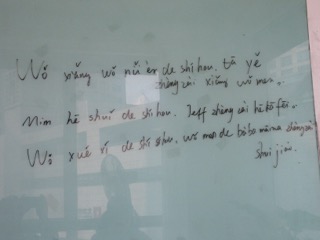 Wǒ xiǎng wǒ nǚ'ér de shí hou, tā yě
zhèng zài xiǎng wǒ men.
Mim hē shuǐ de shí hou, Jeff zhèng zài hē kā fēi.
Wǒ xué xí de shí hou, wǒ men de bàba māma zhèng zài
shuì jiào.